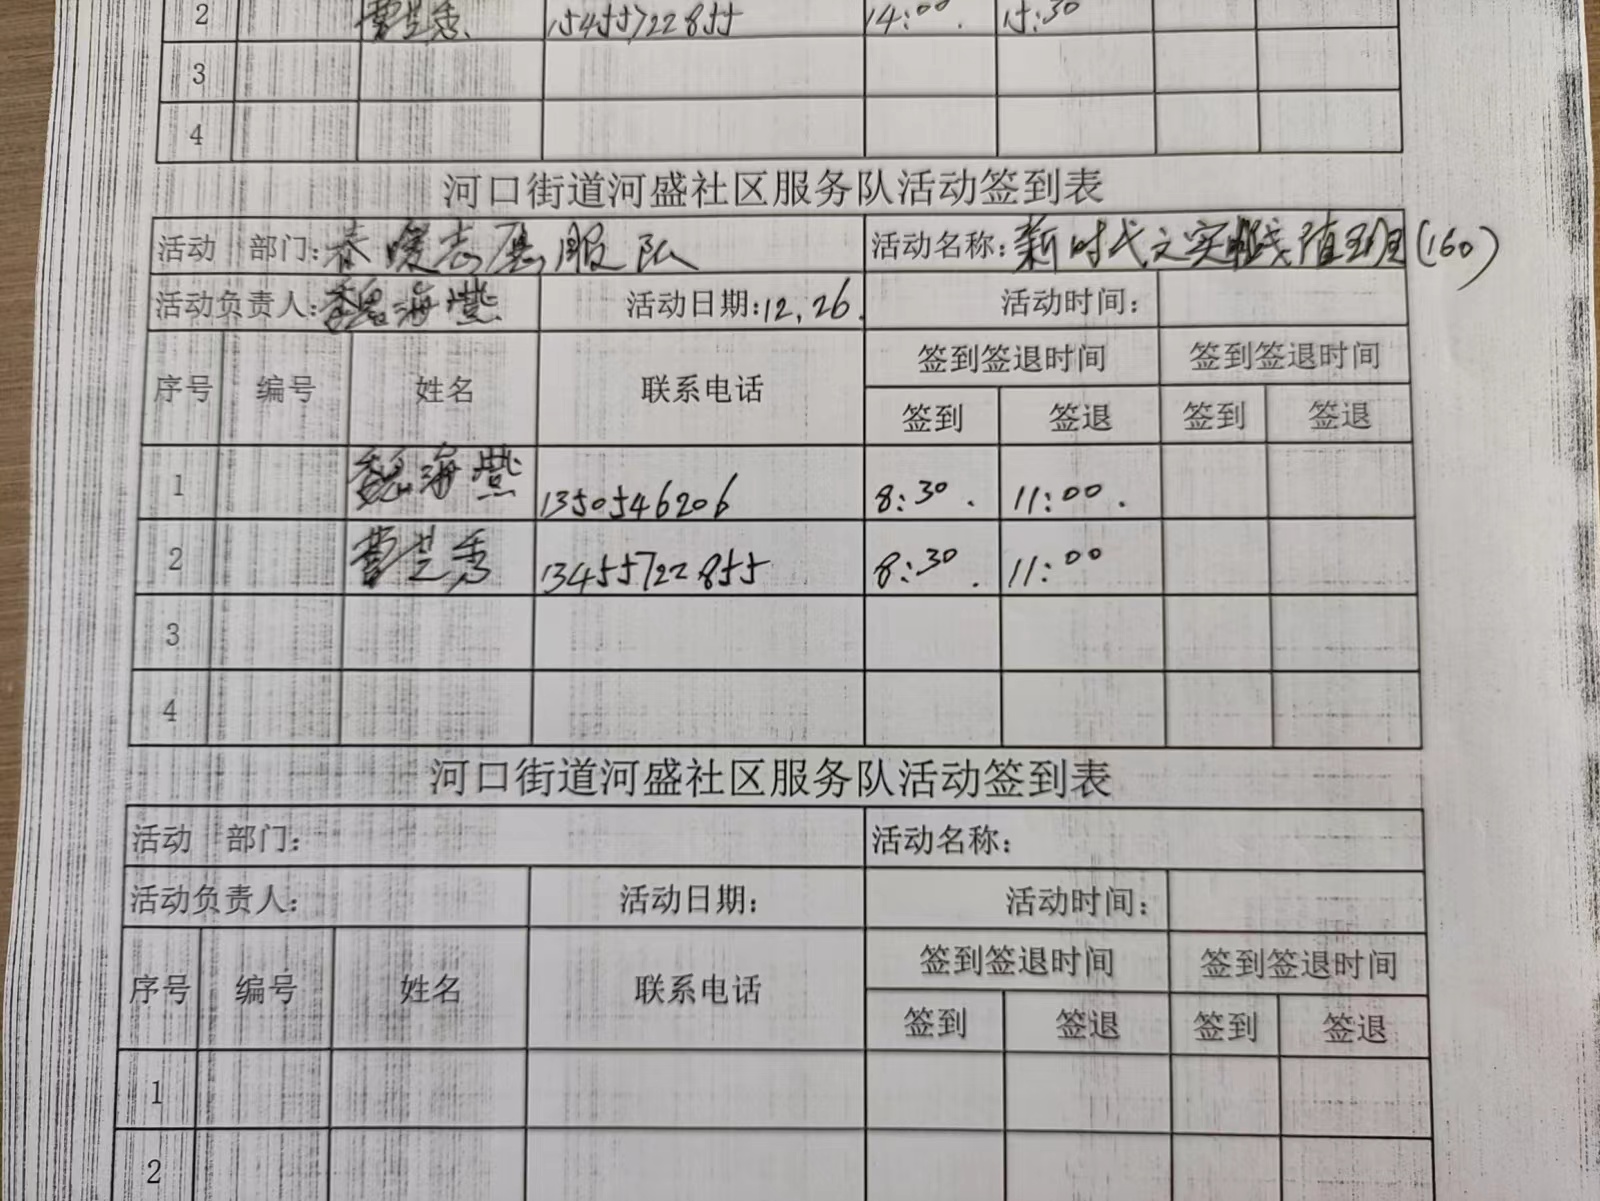 2 曹芝秀 15455722855 14:00. 15:30
3
4
河口街道河盛社区服务队活动签到表
活动 部门: 春暖志愿服队 活动名称: 新时代文实践值班(160)
活动负责人: 魏海 活动日期: 12,26. 活动时间:
序号 编号 姓名 联系电话 签到签退时间 签到签退时间
签到 签退 签到 签退
1 魏海 1350546206 8:30. 11:00.
2 曹芝秀 13455722855 8:30. 11:00
3
4
河口街道河盛社区服务队活动签到表
活动 部门: 活动名称:
活动负责人: 活动日期: 活动时间:
序号 编号 姓名 联系电话 签到签退时间 签到签退时间
签到 签退 签到 签退
1
2